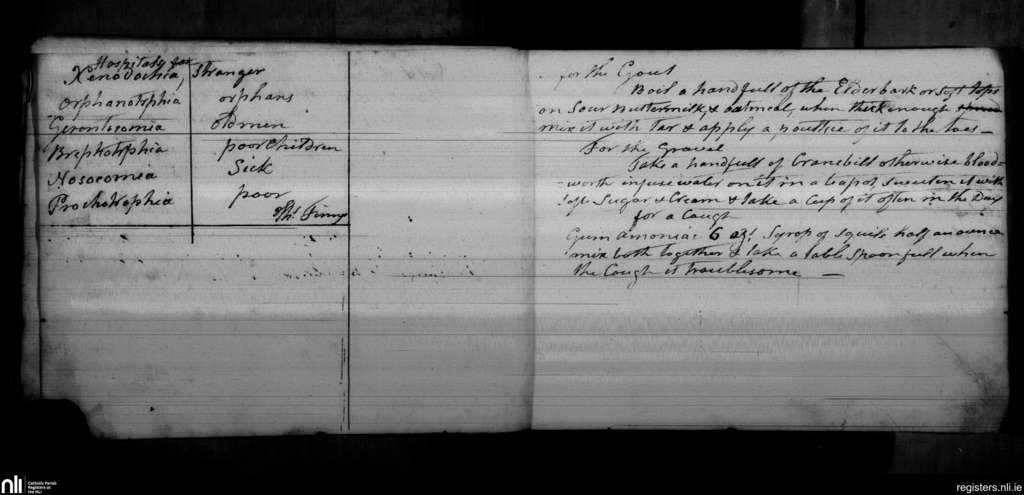 Hospitals for
Xenodochia, Stranger
Orphanotrphia orphans
Gerontocomia old men
Brephotrphia poor Children
Nosocomia Sick
Prochotrophia poor
Ths. Finny
for the Gout
Boil a handfull of the Elder bark or soft tops
on Sour Buttermilk, & oatmeal, when thick enough
mix it with Tar & apply a poultice of it to the toes —
For the Gravel
Take a handfull of Cranebill otherwise blood=
=worth infuse water on it in a teapot sweeten it with
Sugar & Cream & take a Cup of it often in the Day
for a Cough
Gum Amoniac 6 oz. Syrop of Squils half an ounce
mix both together & take a table Spoon full when
the Cough is troublesome —
nli Catholic Parish
Registers at
the NLI
registers.nli.ie